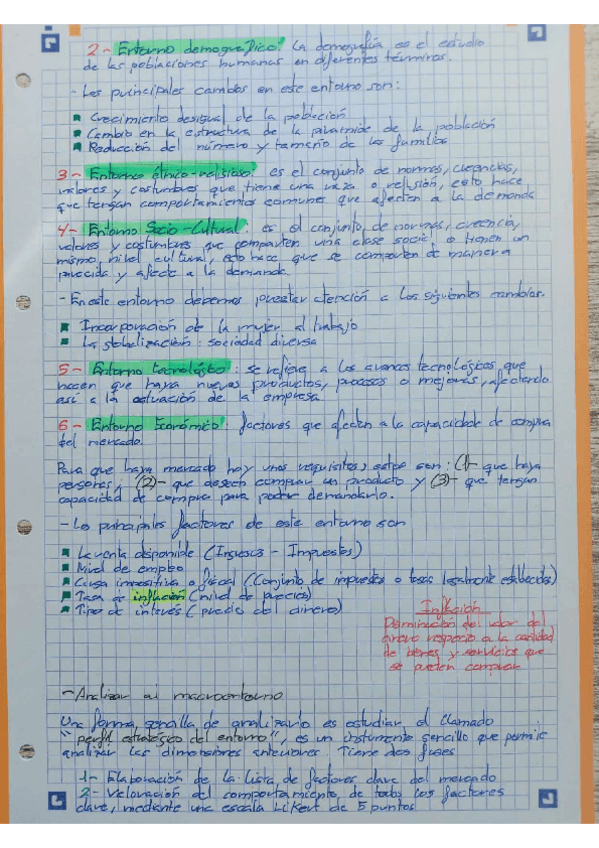 2- Entorno demografico: La demografía es el estudio
de las poblaciones humanas en diferentes términos.
- Los principales cambios en este entorno son:
Crecimiento desigual de la población
Cambio en la estructura de la piramide de la población
Reducción del número y tamaño de las familias
3- Entorno étnico-religioso: es el conjunto de normas, creencias,
valores y costumbres que tiene una raza o religión, esto hace
que tengan comportamientos comunes que afecten a la demanda
4- Entorno Socio-Cultural: es el conjunto de normas, creencia,
valores y costumbres que comparten una clase social o tienen un
mismo nivel cultural, esto hace que se comporten de manera
parecida y afecte a la demanda.
- En este entorno debemos prestar atención a los siguientes cambios.
Incorporación de la mujer al trabajo
La globalización: sociedad diversa
5- Entorno tecnológico: se refiere a los avances tecnológicos que
hacen que haya nuevos productos, procesos o mejoras, afectando
así a la actuación de la empresa
6- Entorno Económico: factores que afecten a la capacidad de compra
del mercado.
Para que haya mercado hay unos requisitos, estos son: (1- que haya
personas, (2)- que deseen comprar un producto y (3)- que tengan
capacidad de compra para poder demandarlo.
- Los principales factores de este entorno son
La renta disponible (Ingresos - Impuestos)
Nivel de empleo
Carga impositiva o fiscal (Conjunto de impuestos o tasas legalmente establecidos)
Tasa de inflación (nivel de precios)
Tipo de interés (precio del dinero)
Inflación
Disminución del valor del
dinero respecto a la cantidad
de bienes y servicios que
se pueden comprar
- Analizar al macroentorno
Una forma sencilla de analizarlo es estudiar el llamado
"perfil estratégico del entorno", es un instrumento sencillo que permite
analizar las dimensiones anteriores. Tiene dos fases
1- Elaboración de la lista de factores clave del mercado
2- Valoración del comportamiento de todos los factores
clave, mediante una escala Likert de 5 puntos